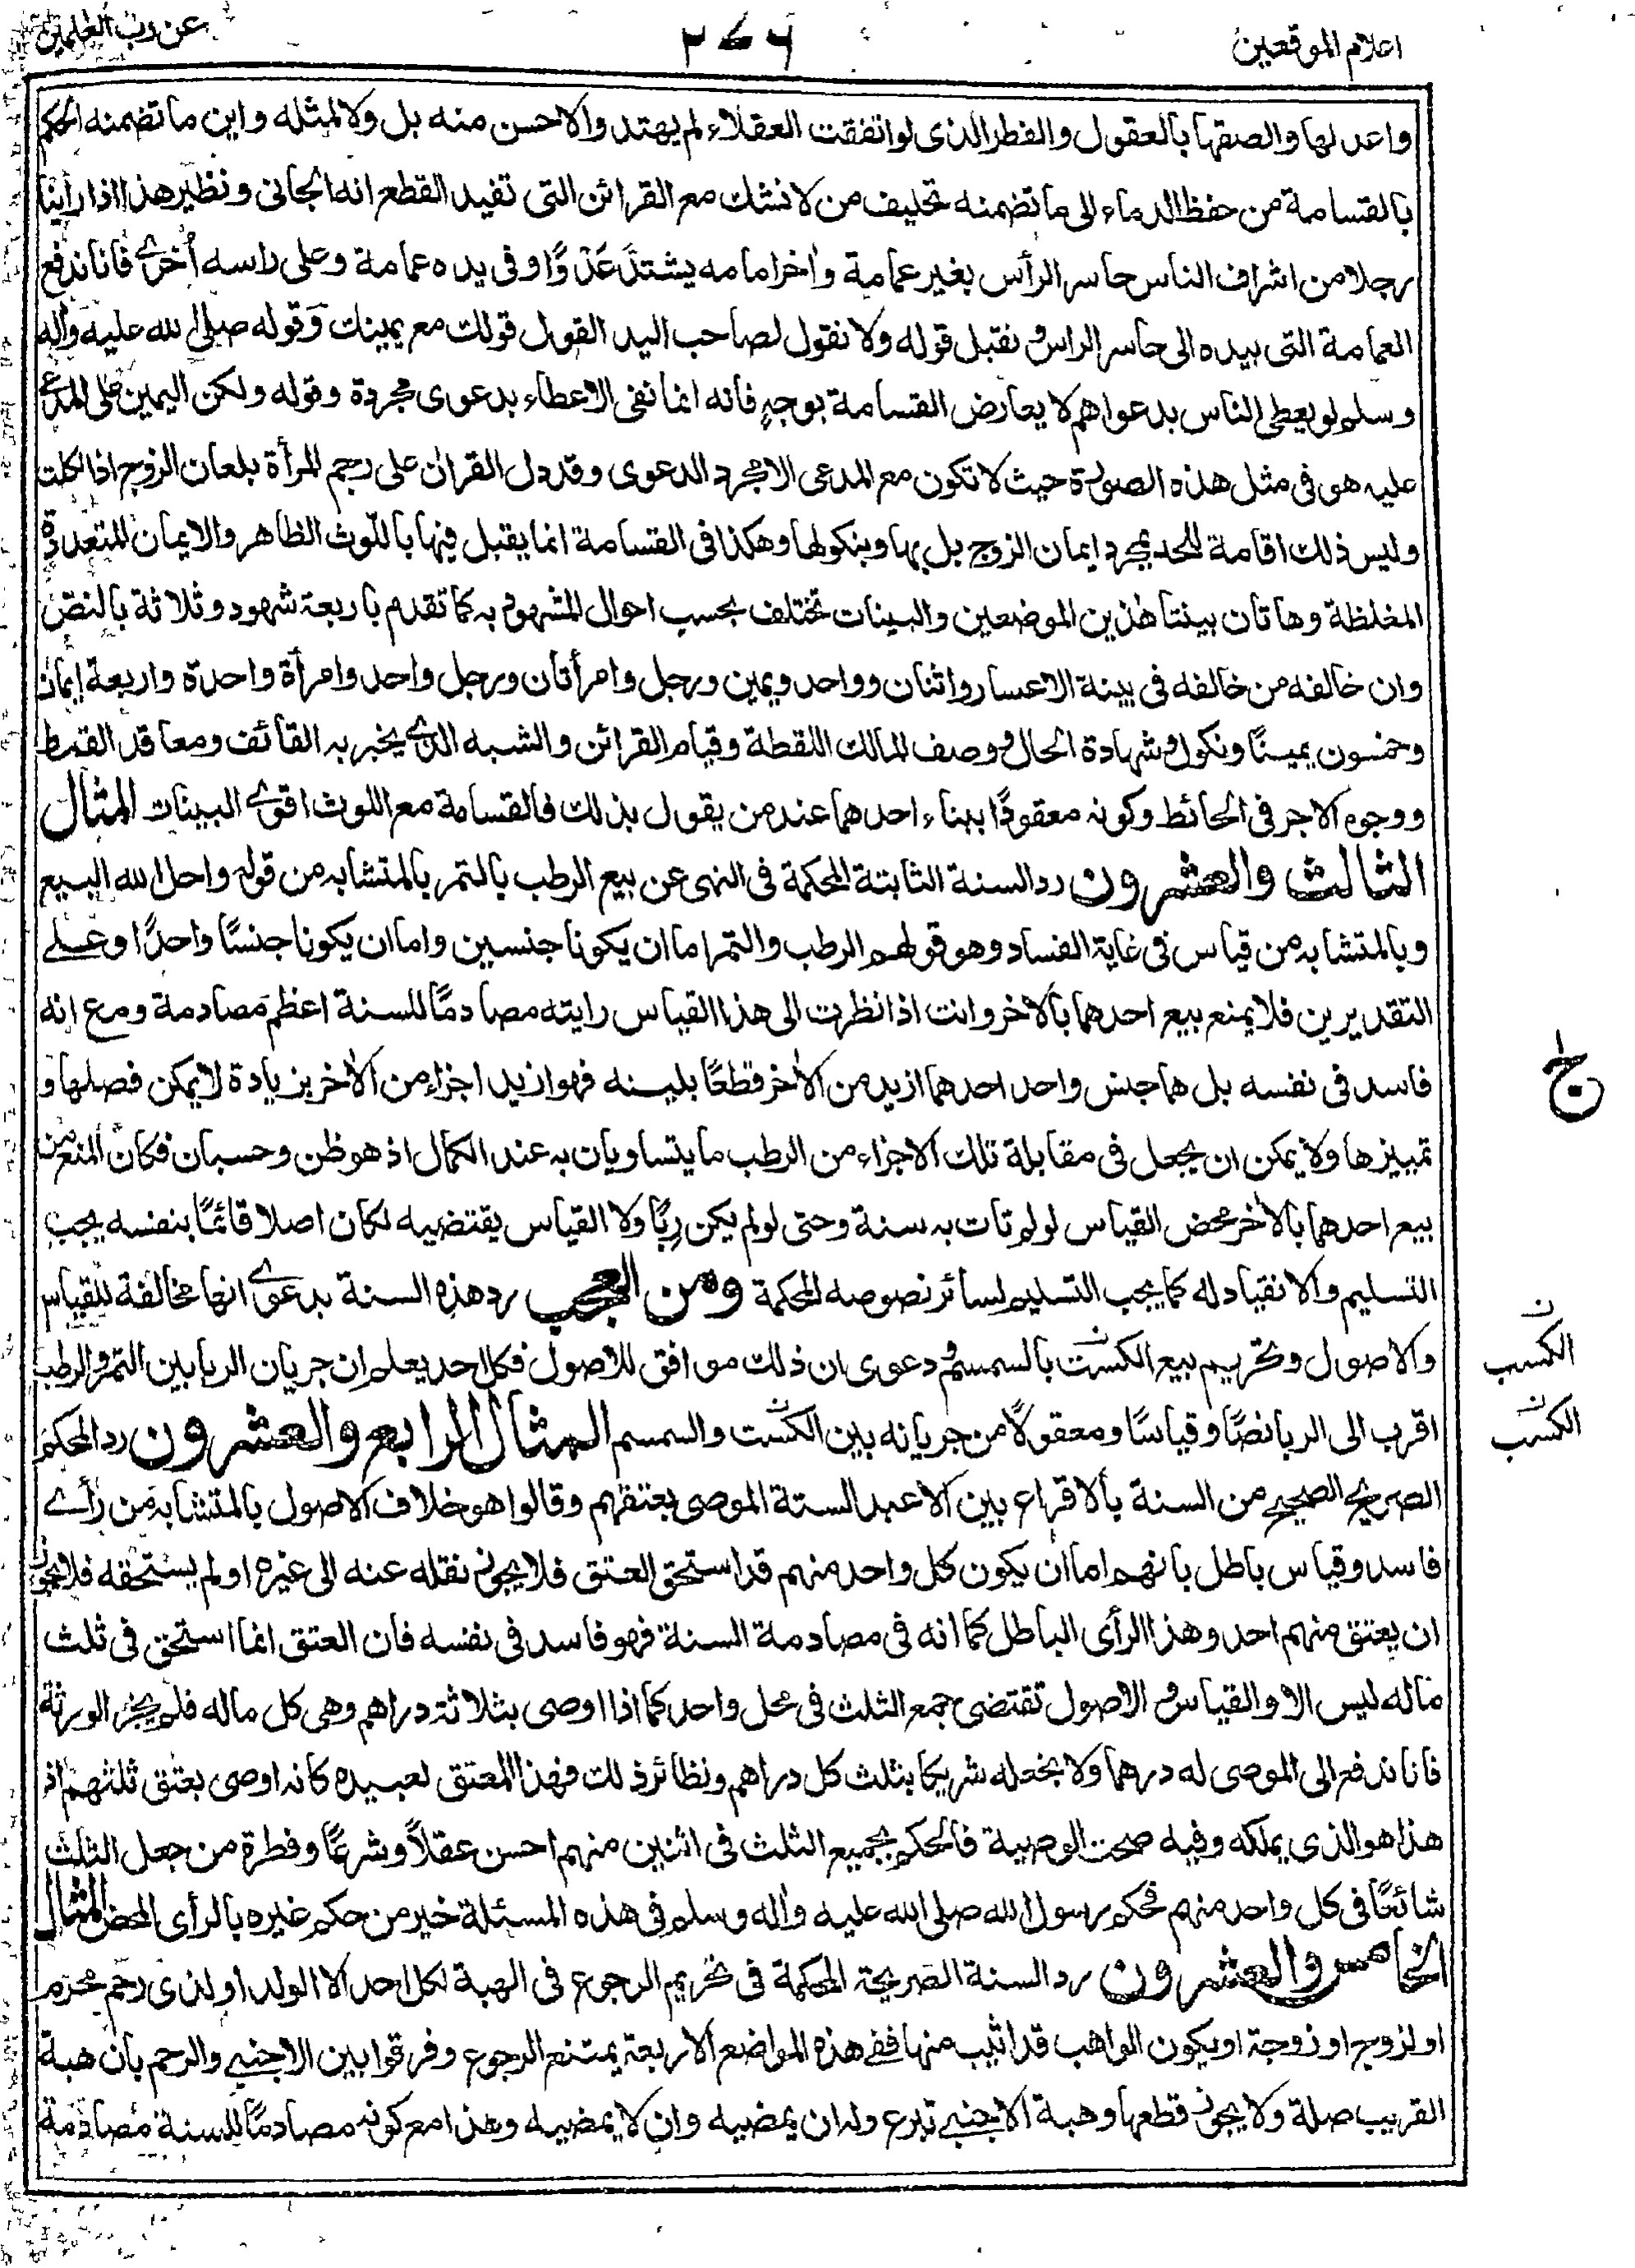 اعلام الموقعين
٢٧٦
عن رب العلمين
واعدلها والصقها بالعقول والفطر الذى لو اتفقت العقلاء لم يهتدوا لاحسن منه بل ولا لمثله واين ما تضمنه الحكم
بالقسامة من حفظ الدماء الى ما تضمنه تحليف من لا نشك مع القرائن التى تفيد القطع انه الجانى ونظير هذا اذا رأينا
رجلا من اشراف الناس حاسر الرأس بغير عمامة واٰخر امامه يشتدّ عَدْوًا وفى يده عمامة وعلى راسه اُخرٰے فانا ندفع
العمامة التى بيده الى حاسر الراس و نقبل قوله ولا نقول لصاحب اليد القول قولك مع يمينك وَقوله صلى الله عليه واٰله
وسلم لو يعطى الناس بدعواهم لا يعارض القسامة بوجهٍ فانه انما نفى الاعطاء بدعوى مجردة وقوله ولكن اليمين على المدعى
عليه هو فى مثل هذه الصورة حيث لا تكون مع المدعى الا مجرد الدعوى وقد دل القراٰن على رجم المرأة بلعان الزوج اذا نكلت
وليس ذلك اقامة للحد بمجرد ايمان الزوج بل بها وبنكولها وهكذا فى القسامة انما يقبل فيها باللّوث الظاهر والايمان المتعددة
المغلظة وهاتان بينتا هٰذين الموضعين والبينات تختلف بحسب احوال المشهود به كما تقدم باربعة شهود وثلاثة بالنصّ
وان خالفه من خالفه فى بينة الاعسار واثنان وواحد ويمين ورجل وامرأتان ورجل واحد وامرأة واحدة واربعة ايمان
وخمسون يمينًا ونكول و شهادة الحال و وصف المالك اللقطة وقيام القرائن والشبه الذى يخبر به القائف ومعاقد القمط
ووجوه الاجر فى الحائط وكونه معقودًا ببناء احدهما عند من يقول بذلك فالقسامة مع اللوث اقوٰے البينات المثال
الثالث والعشرون رد السنة الثابتة المحكمة فى النهى عن بيع الرطب بالتمر بالمتشابه من قوله واحل الله البيع
وبالمتشابه من قياس فى غاية الفساد وهو قولهم الرطب والتمر اما ان يكونا جنسين واما ان يكونا جنسًا واحدًا وعلے
التقديرين فلا يمنع بيع احدهما بالاٰخر وانت اذا نظرت الى هذا القياس رايته مصادمًا للسنة اعظم مَصادمة ومع انه
فاسد فى نفسه بل هما جنس واحد احدهما ازيد من الاٰخر قطعًا بلينه فهو ازيد اجزاء من الاٰخر بزيادة لا يمكن فصلها و
تمييزها ولا يمكن ان يجعل فى مقابلة تلك الاجزاء من الرطب ما يتساويان به عند الكمال اذ هو ظن وحسبان فكان المنع من
بيع احدهما بالاٰخر محض القياس لو لم تات به سنة وحتى لو لم يكن رِبًا ولا القياس يقتضيه لكان اصلا قائمًا بنفسه يجب
التسليم والانقياد له كما يجب التسليم لسائر نصوصه المحكمة ومن العجب رد هذه السنة بدعوٰے انها مخالفة للقياس
والاصول وتحريم بيع الكسْت بالسمسم و دعوى ان ذلك موافق للاصول فكل احد يعلم ان جريان الربا بين التمر والرطب
اقرب الى الربا نصًا وقياسًا ومعقولًا من جريانه بين الكسْت والسمسم المثال الرابع والعشرون رد المحكم
الصريح الصحيح من السنة بالاقراع بين الاعبد الستة الموصى بعتقهم وقالوا هو خلاف الاصول بالمتشابه من رأے
فاسد وقياس باطل بانهم اما ان يكون كل واحد منهم قد استحق العتق فلا يجوز نقله عنه الى غيره او لم يستحقه فلا يجوز
ان يعتق منهم احد وهذا الرأى الباطل كما انه فى مصادمة السنة فهو فاسد فى نفسه فان العتق انما استحق فى ثلث
ماله ليس الا والقياس و الاصول تقتضى جمع الثلث فى محل واحد كما اذا اوصى بثلاثة دراهم وهى كل ماله فلم يجز الورثة
فانا ندفع الى الموصى له درهما ولا نجعله شريكا بثلث كل دراهم ونظائر ذلك فهذا المعتق لعبيده كانه اوصى بعتق ثلثهم اذ
هذا هو الذى يملكه وفيه صحت الوصية فالحكم بجميع الثلث فى اثنين منهم احسن عقلًا وشرعًا وفطرة من جعل الثلث
شائعًا فى كل واحد منهم فحكم رسول الله صلى الله عليه واٰله وسلم فى هذه المسئلة خير من حكم غيره بالرأى المحض المثال
الخامس والعشرون رد السنة الصريحة المحكمة فى تحريم الرجوع فى الهبة لكل احد الا الوالد او لذى رحم محرم
او لزوج او زوجة او يكون الواهب قد اثيب منها ففے هذه المواضع الاربعة يمتنع الرجوع وفرقوا بين الاجنبے والرحم بان هبة
القريب صلة ولا يجوز قطعها وهبة الاجنبے تبرع وله ان يمضيه وان لا يمضيه وهذا مع كونه مصادمًا للسنة مصادمة
ج
ن
الكسب
ن
الكسب